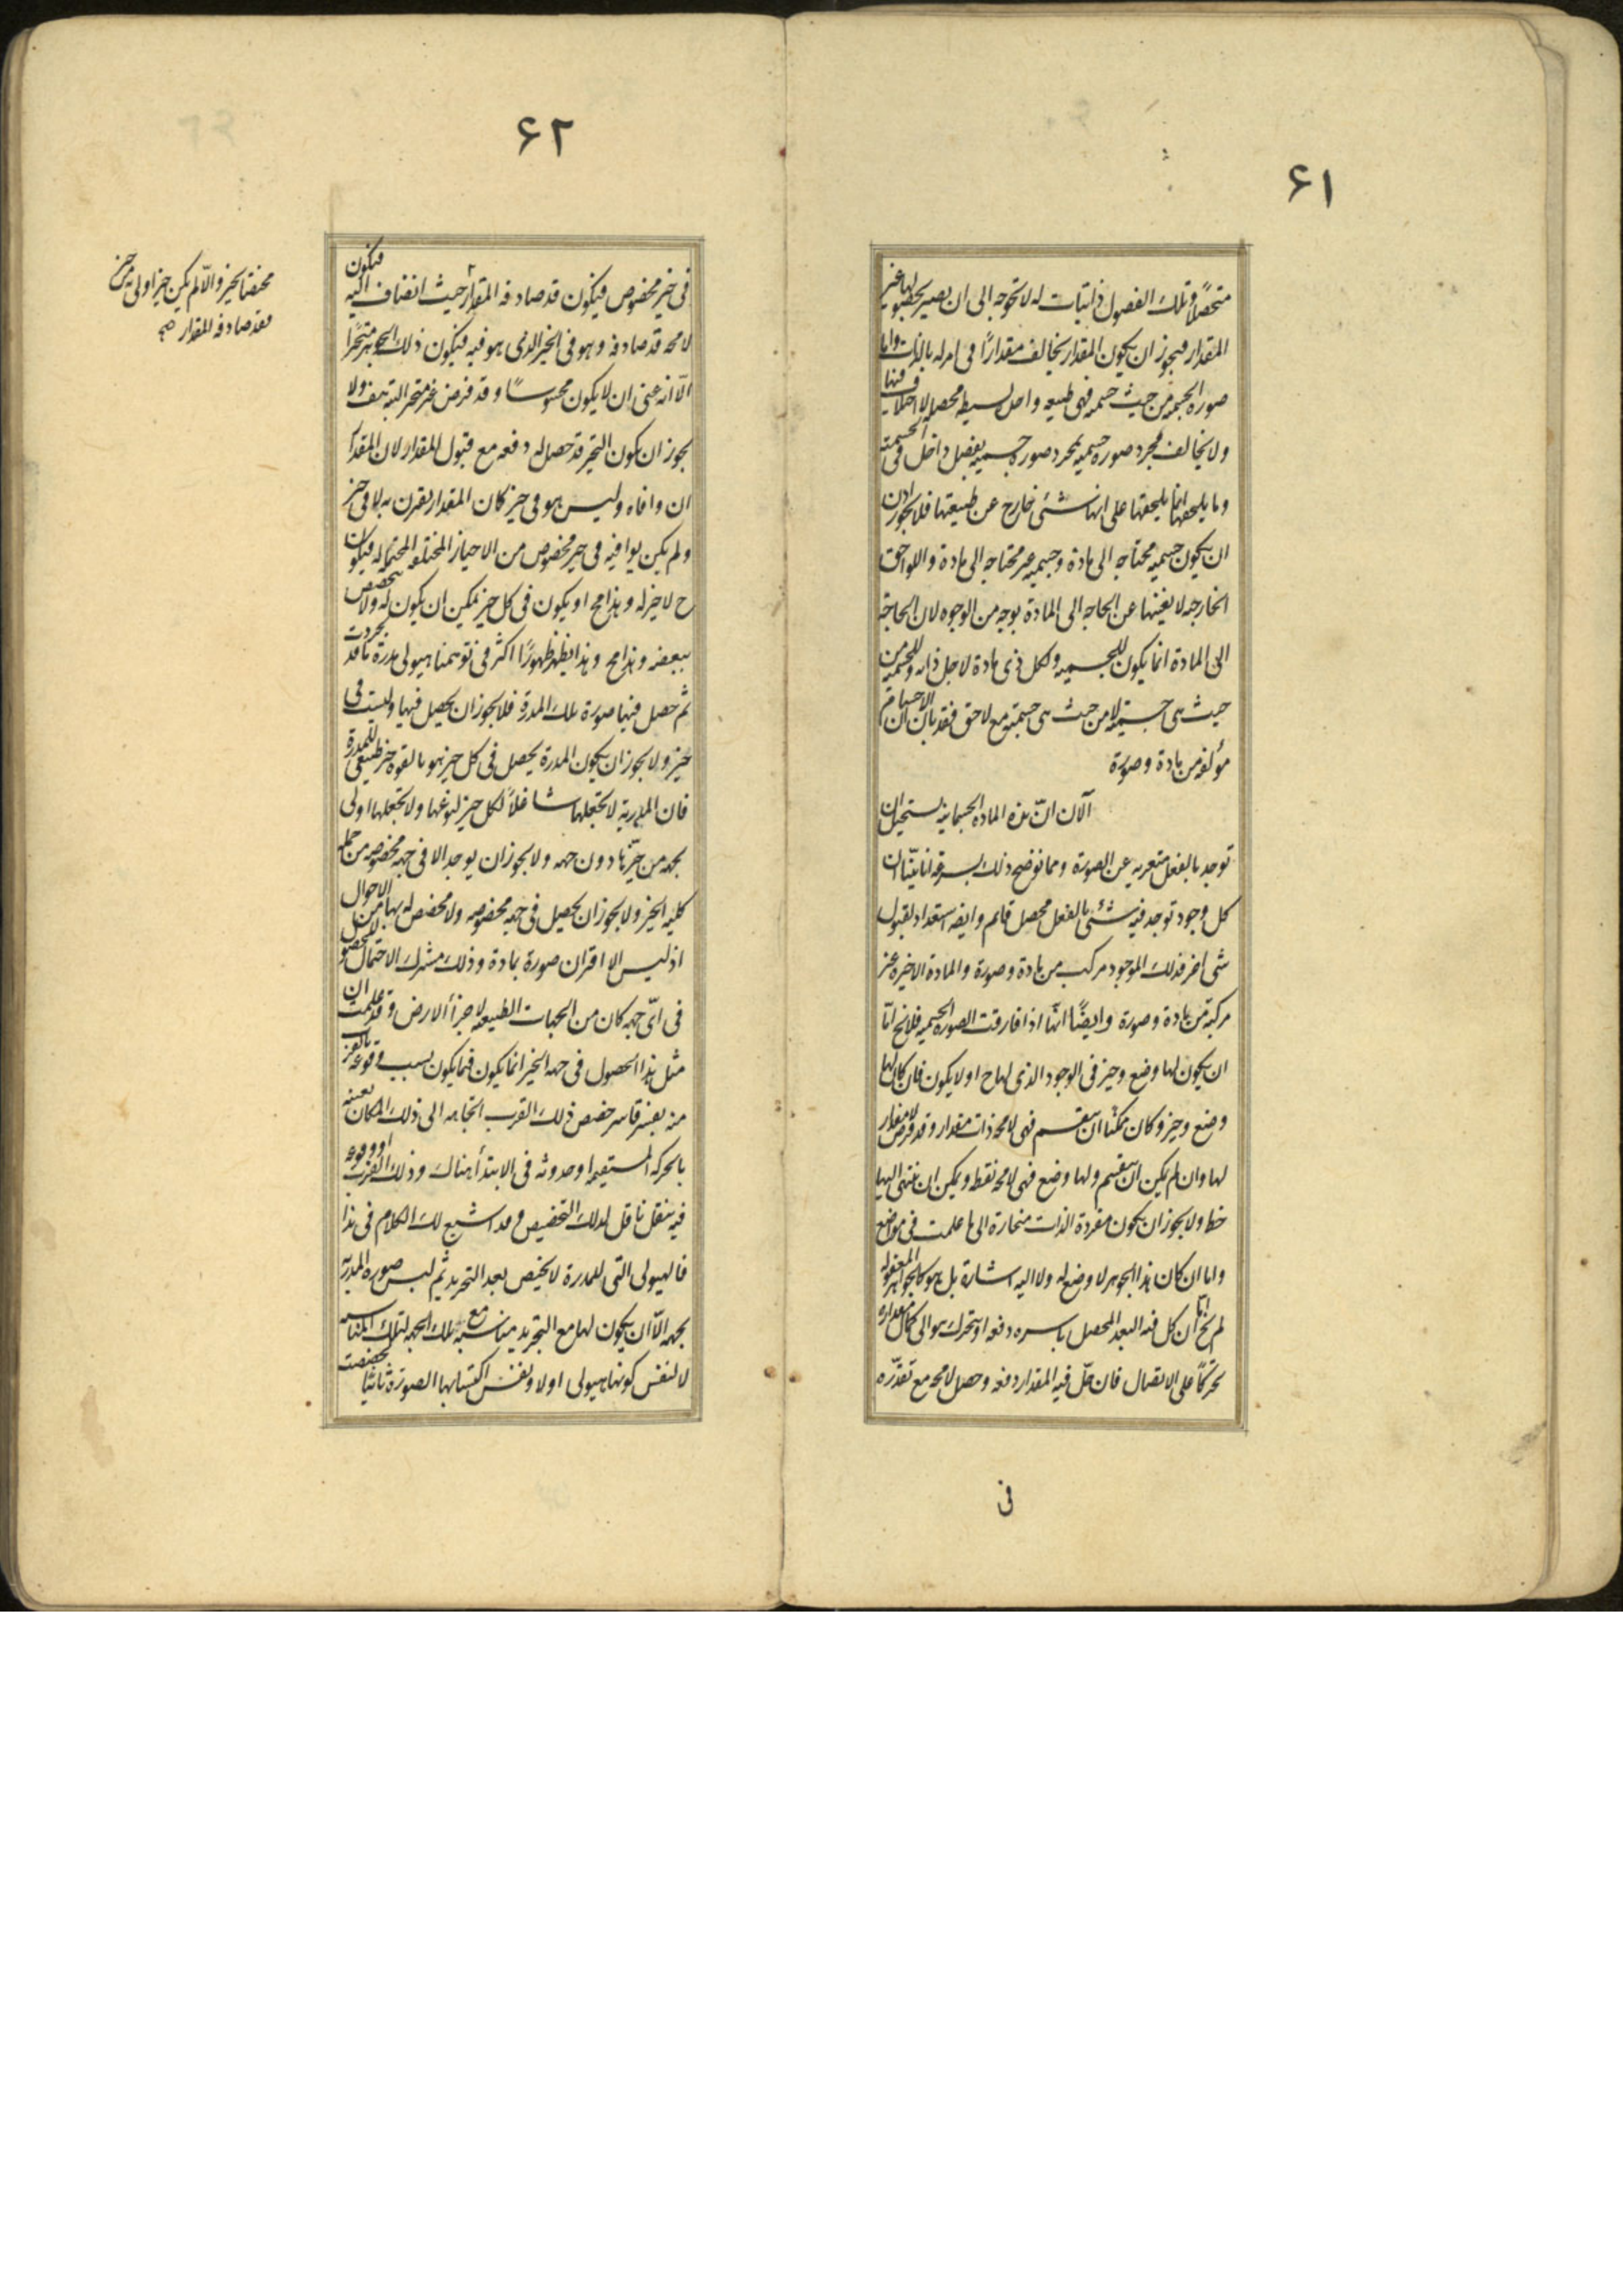 ۶۱
متحصلًا وتلك الفصول ذاتيات له لا تحوجه الى ان يصير بحصولها غير
المقدار فيجوز ان يكون المقدار يخالف مقدارًا فى امر له بالذات واما
صورة الجسمية من حيث جسمية فهى طبيعة واحدة بسيطة محصلة لا اختلاف فيها
ولا يخالف مجرد صورة جسمية لمجرد صورة جسمية بفصل داخل فى الجسمية
وما يلحقها انما يلحقها على انها شئ خارج عن طبيعتها فلا يجوز اذن
ان يكون جسمية محتاجه الى مادة وجسمية غير محتاجه الى مادة واللواحق
الخارجه لا يغنيها عن الحاجه الى المادة بوجه من الوجوه لان الحاجة
الى المادة انما يكون للجسمية ولكل ذى مادة لاجل ذاته وللجسمية من
حيث هى جسمية لا من حيث هى جسمية مع لاحق فقد بان ان الاجسام
مؤلفه من مادة وصورة
الآن انّ هذه المادة الجسمانية يستحيل ان
توجد بالفعل متعرية عن الصورة ومما نوضح ذلك بسرعة انا بيّنا ان
كل وجود توجد فيه شئ بالفعل محصل قائم وايضا استعداد لقبول
شى اخر فذلك الموجود مركب من مادة وصورة والمادة الاخيرة غير
مركبة من مادة وصورة وايضًا انّها اذا فارقت الصورة الجسمية فلا يخ امّا
ان يكون لها وضع وحيز فى الوجود الذى لها ح او لا يكون فان كان لها
وضع وحيز وكان ممكنا ان ينقسم فهى لا محه ذات مقدار وقد فرض لا مقدار
لها وان لم يكن ان ينقسم ولها وضع فهى لا محه نقطه ويمكن ان ينتهى اليها
خط ولا يجوز ان يكون مفردة الذات منحازة الى ما علمت فى مواضع
واما ان كان هذا الجوهر لا وضع له ولا اليه اشارة بل هو كالجواهر المعقوله
لم يخ امّا ان يحل فيه البعد المحصل باسره دفعه او يتحرك هو الى كمال مقداره
تحركًا على الاتصال فان حلّ فيه المقدار دفعه وحصل لا محه مع تقدّره
فى
۶۲
فى حيز مخصوص فيكون قد صادفه المقدار حيث انضاف اليه فيكون
لا محه قد صادفه وهو فى الحيز الذى هو فيه فيكون ذلك الجوهر متحيزًا
الّا انه عسى ان لا يكون محسوسًا وقد فرض غير متحيز البته هف ولا
يجوز ان يكون التحيز قد حصل له دفعه مع قبول المقدار لان المقدار
ان وافاه وليس هو فى حيز كان المقدار يقترن به لا فى حيز
ولم يكن يوافيه فى حيز مخصوص من الاحياز المختلفه المحتمله له فيكون
ح لا حيز له وهذا مح او يكون فى كل حيز يمكن ان يكون له ولا يتخصص
ببعضه وهذا مح وهذا يظهر ظهورًا اكثر فى توهمنا هيولى مدرة ما قد تجردت
ثم حصل فيها صورة تلك المدرة فلا يجوز ان يحصل فيها وليست فى
حيز ولا يجوز ان يكون المدرة يحصل فى كل حيز هو بالقوه حيز طبيعى للمدرة
فان المدرية لا تجعلها شاغلًا لكل حيز لنوعها ولا تجعلها اولى
بجهه من حيّزها دون جهه ولا يجوز ان يوجد الا فى جهه مخصوصه من جمله
كليه الحيز ولا يجوز ان يحصل فى جهه مخصوصه ولا مخصص له بها من الاحوال
اذ ليس الا اقتران صورة بمادة وذلك مشترك الاحتمال للحصول
فى اىّ جهه كان من الجهات الطبيعه لاجزأ الارض وقد علمت ان
مثل هذا الحصول فى جهه الحيز انما يكون فيما يكون بسبب وقوعه بالقرب
منه بقسر قاسر خصص ذلك القرب اتجاهه الى ذلك المكان بعينه
بالحركه المستقيمه او حدوثه فى الابتدأ هناك وذلك القرب او وقوعه
فيه بنقل ناقل لذلك التخصيص وقد اشبع لك الكلام فى هذا
فالهيولى التى للمدرة لا يختص بعد التجريد ثم لبس صورة المدرية
بجهه الّا ان يكون لها مع التجريد مناسبة مع تلك الجهه لتلك المناسبه
لا لنفس كونها هيولى اولا ولنفس اكتسابها الصورة ثانيًا تخصصت
مختصًا بحيز والّا لم يكن حيز اولى به من حيز
فقد صادفه المقدار صح